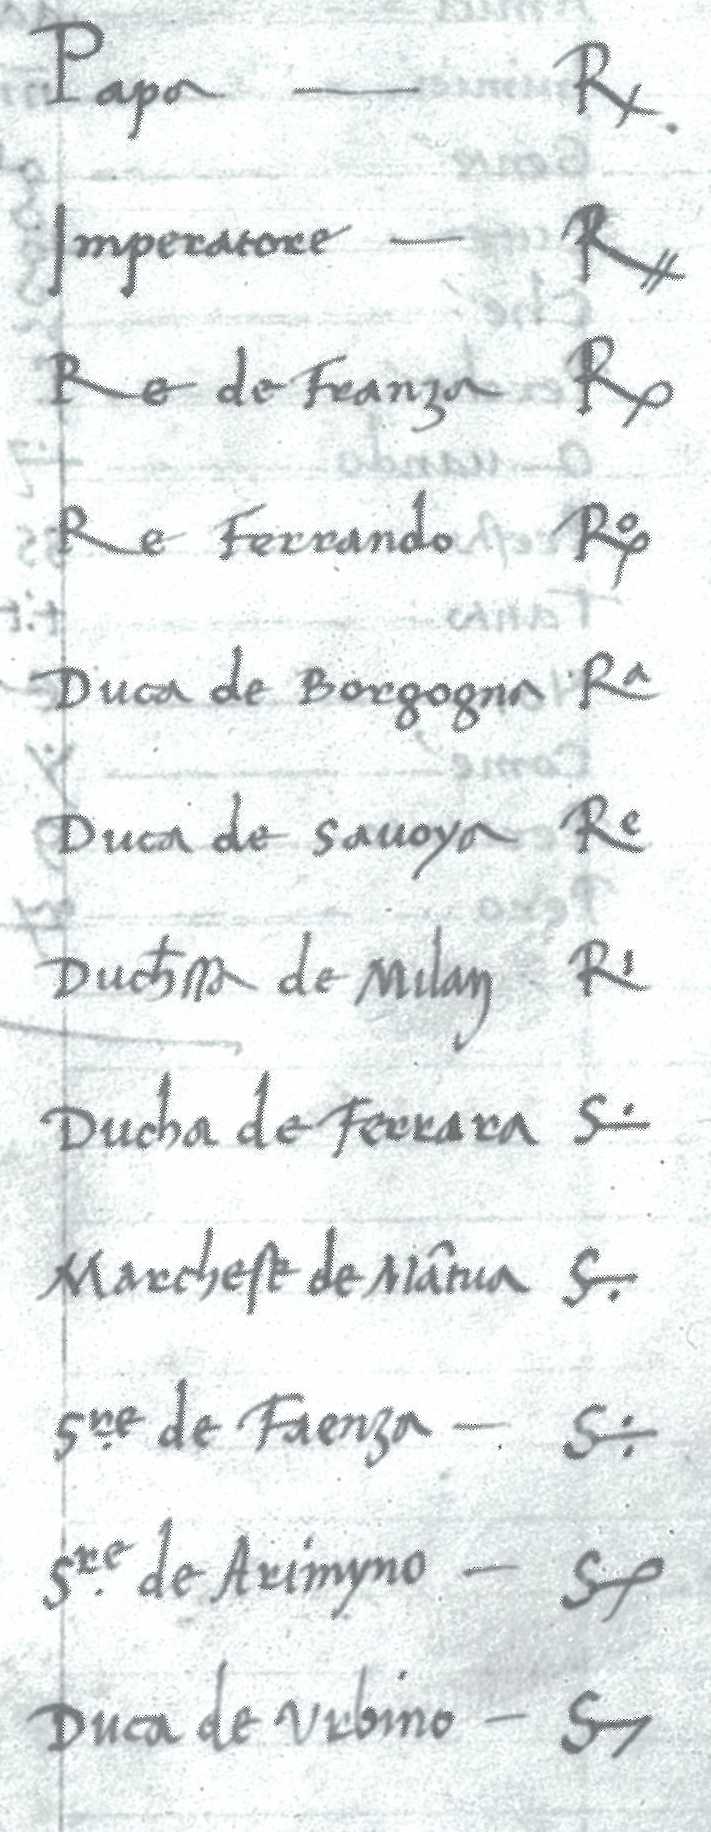 Papa — R
Imperatore — R
Re de Franza R
Re Ferrando R
Duca de Borgogna Rᵃ
Duca de Sauoya Rᵉ
de Milan Rⁱ
Ducha de Ferrara S
Marchese de Mâtua S
Sʳᵉ de Faenza — S
Sʳᵉ de Arimyno — S
Duca de Vrbino — S